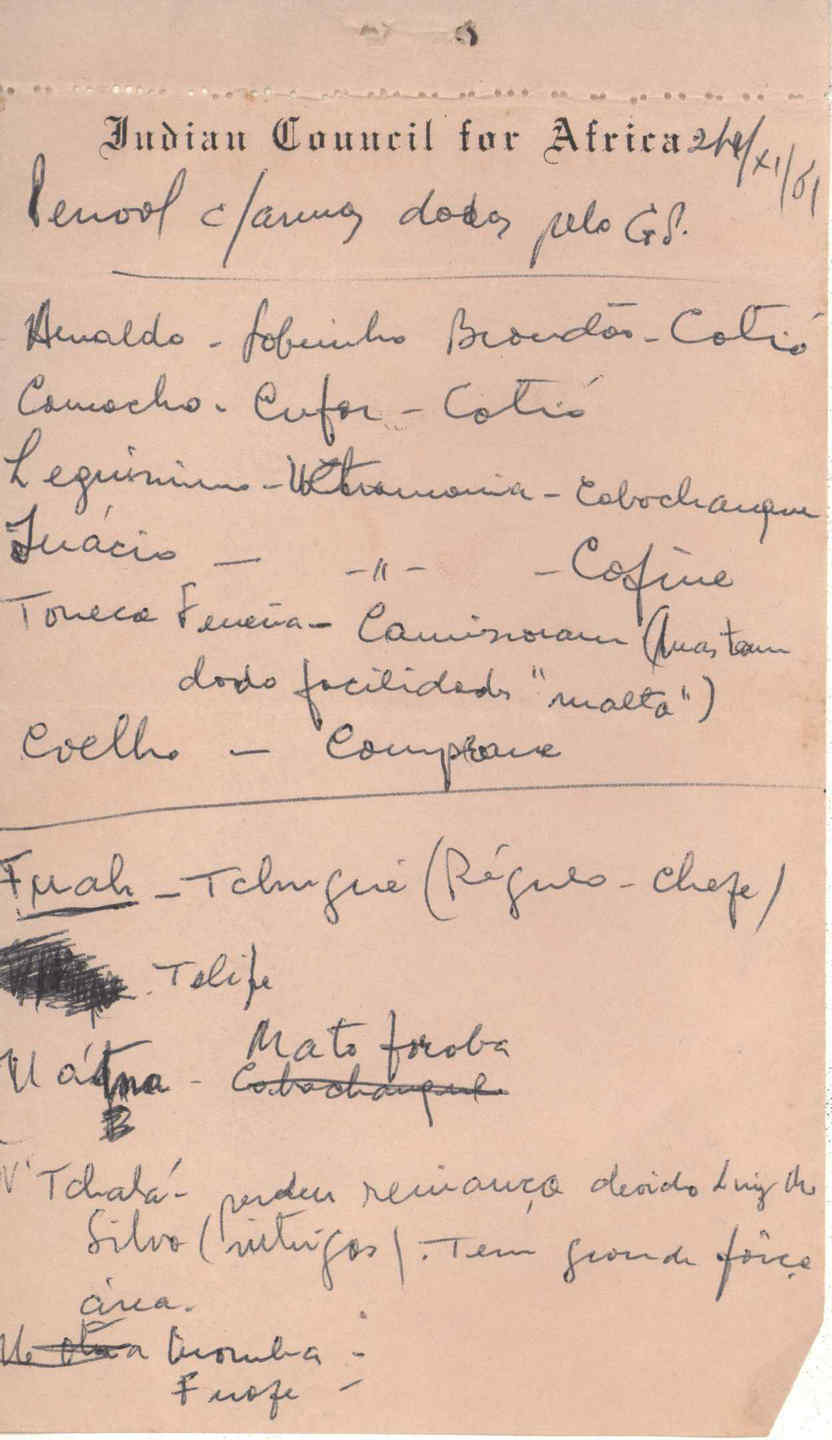 Indian Council for Africa 24/XI/61
Pessoal c/armas dadas pelo G.P.
Arnaldo - Sobrinho Brandão - Catió
Camacho - Cufar - Catió
Leguissimo - Ultramarina - Cabochanque
Inácio - -"- - Cafine
Toneca Ferreira - (mas tem
dado facilidades "malta")
Coelho -
Fuah - Tchugué (Régulo - Chefe)
Telife
Mato foroba
Cabochanque
N'Tchalá - perdeu devido Luiz da
Silva (intrigas). Tem grande fôrça
área.
Fuofe -